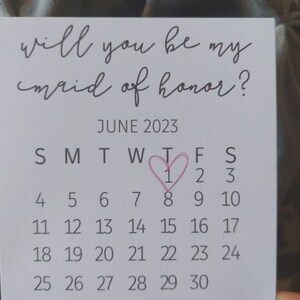 will you be my
maid of honor?
JUNE 2023
S M T W T F S
1 2 3
4 5 6 7 8 9 10
11 12 13 14 15 16 17
18 19 20 21 22 23 24
25 26 27 28 29 30